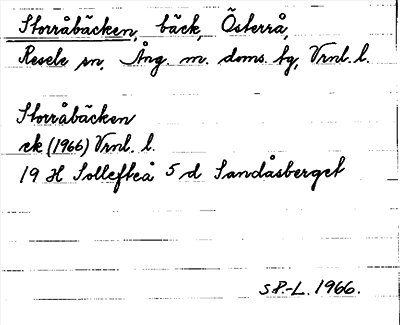 Storråbäcken, bäck, Österrå,
Resele sn, Ång. m. doms. tg, Vrnl. l.
Storråbäcken
ek (1966) Vrnl. l.
19 H Sollefteå 5 d Sandåsberget
S P.-L. 1966.